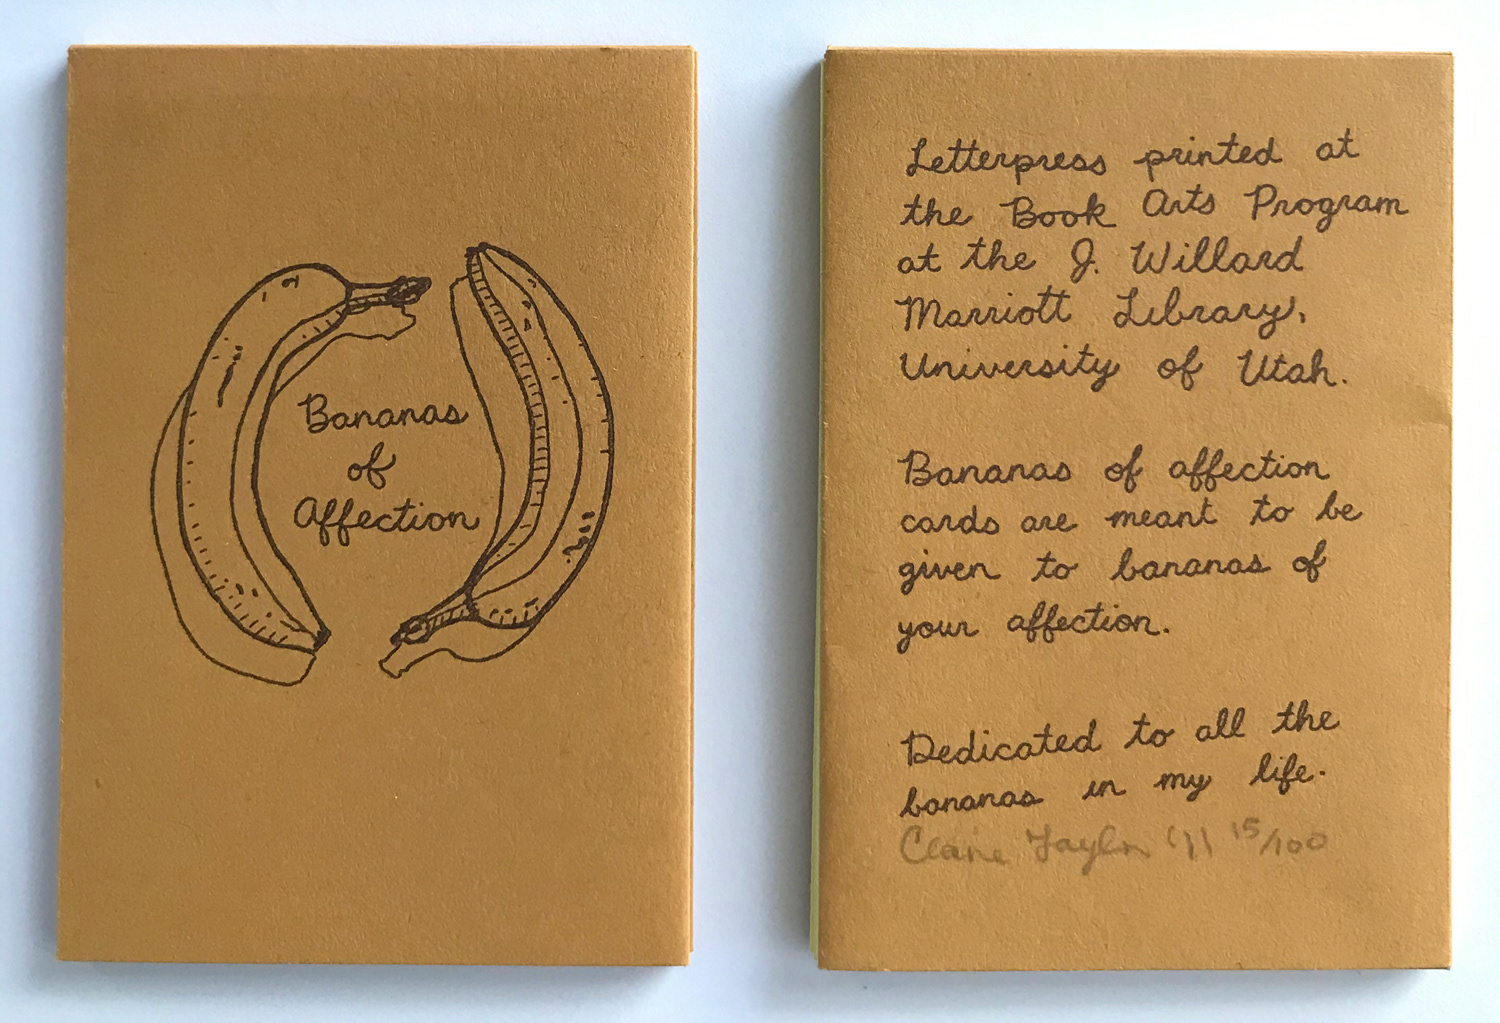 Bananas
of
Affection
Letterpress printed at
the Book Arts Program
at the J. Willard
Marriott Library,
University of Utah.
Bananas of affection
cards are meant to be
given to bananas of
your affection.
Dedicated to all the
bananas in my life.
Claire Taylor '11 15/100